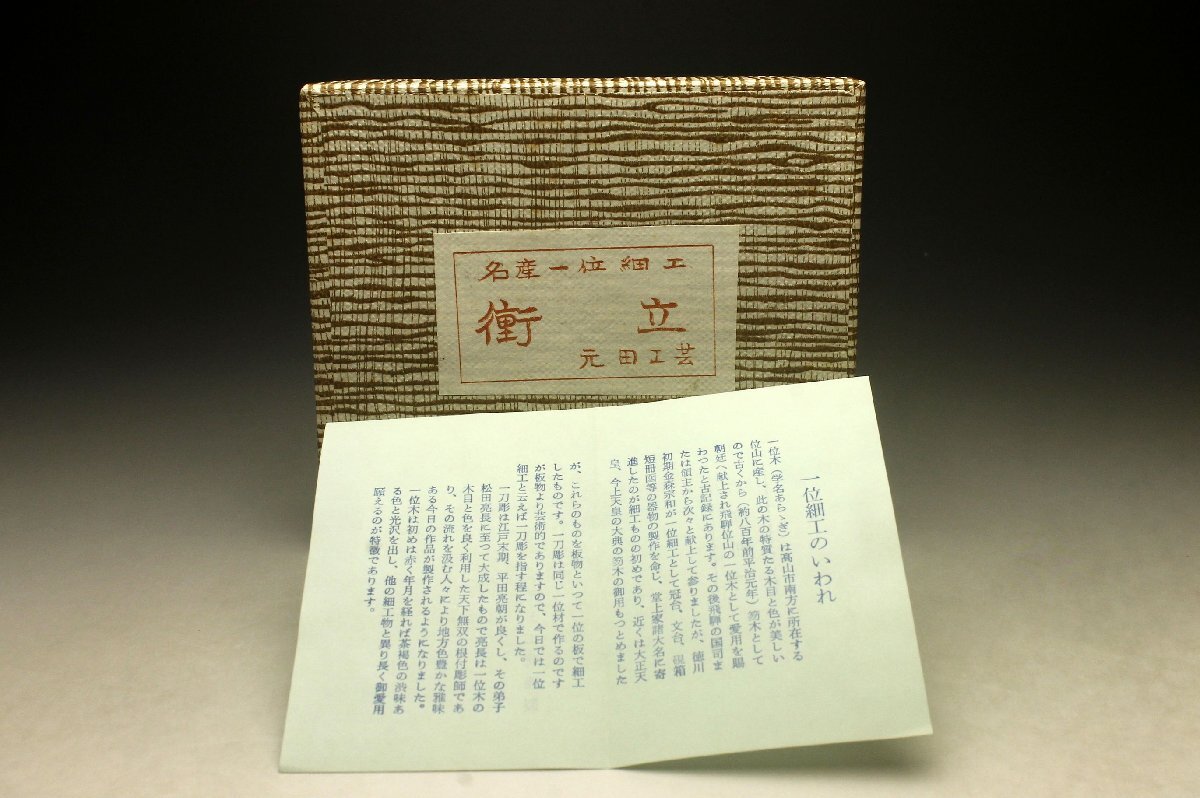 名産一位細工
衝立
元田工芸
一位細工のいわれ
一位木(学名あらゝぎ)は高山市南方に所在する
位山に産し、此の木の特質たる木目と色が美しい
ので古くから(約八百年前平治元年)笏木として
朝廷へ献上され飛騨位山の一位木として愛用を賜
わつたと古記録にあります。その後飛騨の国司ま
たは領主から次々と献上して参りましたが、徳川
初期金森宗和が一位細工として冠台、文台、硯箱
短冊函等の器物の製作を命じ、堂上家諸大名に寄
進したのが細工ものの初めであり、近くは大正天
皇、今上天皇の大典の笏木の御用もつとめました
が、これらのものを板物といつて一位の板で細工
したものです。一刀彫は同じ一位材で作るのです
が板物より芸術的でありますので、今日では一位
細工と云えば一刀彫を指す程になりました。
一刀彫は江戸末期、平田亮朝が良くし、その弟子
松田亮長に至つて大成したもので亮長は一位木の
木目と色を良く利用した天下無双の根付彫師であ
り、その流れを汲む人々により地方色豊かな雅味
ある今日の作品が製作されるようになりました。
一位木は初めは赤く年月を経れば茶褐色の渋味あ
る色と光沢を出し、他の細工物と異り長く御愛用
願えるのが特徴であります。